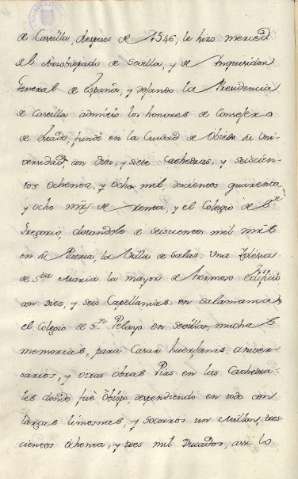 de Castilla, despues de 1546, le hizo merced
del Arzobispado de Sevilla, y de Inquisidor
General de España, y dejando la Presidencia
de Castilla admitio los honores de Consejero
de Estado, fundó en la Ciudad de Oviedo la Uni-
versidad con diez y siete Cathedras, y seiscien-
tos ochenta, y ocho mil, docientos quarenta,
y ocho mrs de Renta, y el Colegio de Sn
Gregorio dotandolo de seiscientos mil mrs
en la Patria, la Villa de Salas. Una Iglesia
de Sta Maria la mayor de hermoso Edificio
con diez, y seis Capellanias, en Salamanca
el Colegio de Sn Pelayo en Sevilla, muchas
memorias, para Casar huerfanas, aniver-
sarios, y otras obras Pias en las Cathedra-
les donde fue Obispo, expendiendo en todo con
largas limosnas, y socorros un millon, tres
cientos ochenta, y tres mil Ducados, asi lo